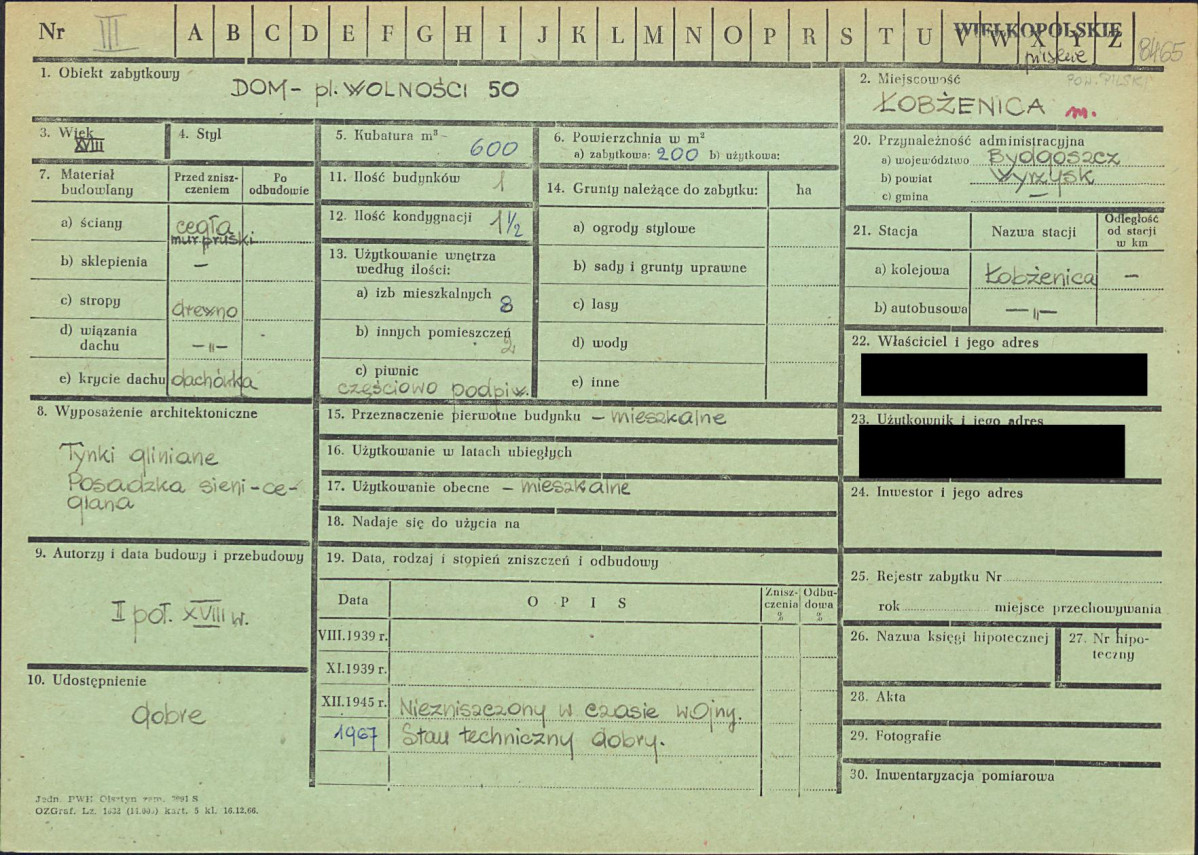 Nr III A B C D E F G H I J K L M N O P R S T U V W X Y Z
WIELKOPOLSKIE
pilskie
8465
1. Obiekt zabytkowy
DOM - pl. WOLNOŚCI 50
2. Miejscowość
POW. PILSKI
ŁOBŻENICA m.
3. Wiek
XVIII
4. Styl
5. Kubatura m³
600
6. Powierzchnia w m²
a) zabytkowa: 200 b) użytkowa:
7. Materiał budowlany
Przed zniszczeniem
Po odbudowie
a) ściany cegła
mur pruski
b) sklepienia —
c) stropy drewno
d) wiązania dachu —"—
e) krycie dachu dachówka
8. Wyposażenie architektoniczne
Tynki gliniane
Posadzka sieni - ce-
glana
9. Autorzy i data budowy i przebudowy
II poł. XVIII w.
10. Udostępnienie
dobre
11. Ilość budynków 1
12. Ilość kondygnacji 1 1/2
13. Użytkowanie wnętrza
według ilości:
a) izb mieszkalnych 8
b) innych pomieszczeń 2
c) piwnic
częściowo podpiw.
14. Grunty należące do zabytku: ha
a) ogrody stylowe
b) sady i grunty uprawne
c) lasy
d) wody
e) inne
15. Przeznaczenie pierwotne budynku – mieszkalne
16. Użytkowanie w latach ubiegłych
17. Użytkowanie obecne – mieszkalne
18. Nadaje się do użycia na
19. Data, rodzaj i stopień zniszczeń i odbudowy
Data OPIS Znisz-czenia % Odbu-dowa %
VIII.1939 r.
XI.1939 r.
XII.1945 r. Niezniszczony w czasie wojny.
1967 Stan techniczny dobry.
20. Przynależność administracyjna
a) województwo Bydgoszcz
b) powiat Wyrzysk
c) gmina —
21. Stacja
Nazwa stacji
Odległość od stacji w km
a) kolejowa Łobżenica —
b) autobusowa —"—
22. Właściciel i jego adres
23. Użytkownik i jego adres
24. Inwestor i jego adres
25. Rejestr zabytku Nr
rok miejsce przechowywania
26. Nazwa księgi hipotecznej
27. Nr hipo-
teczny
28. Akta
29. Fotografie
30. Inwentaryzacja pomiarowa
Jedn. PWH Olsztyn zam. S
OZGraf. Lz. 1632 (14.000) kart. 5 kl. 16.12.66.